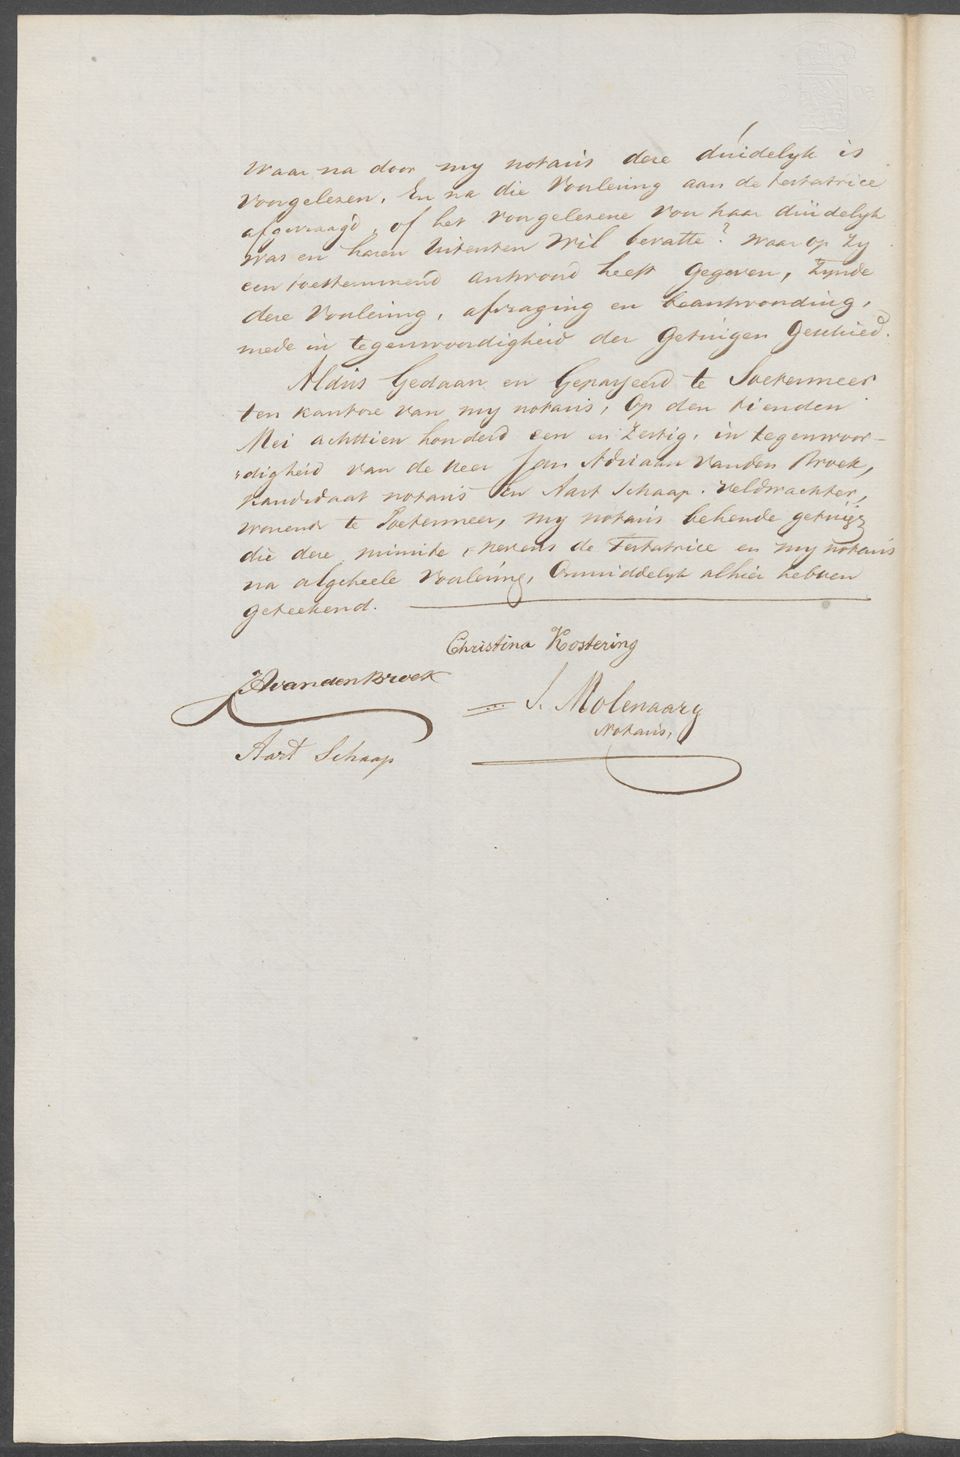 waar na door my notaris deze duidelyk is
voorgelezen. En na die Voorlezing aan de testatrice
afgevraagd, of het voorgelezene voor haar duidelyk
was en haren Uitersten Wil bevatte? waar op zy
een toestemmend antwoord heeft gegeven, zynde
deze Voorlezing, afvraging en beantwoording,
mede in tegenwoordigheid der Getuigen Geschied.
Aldus Gedaan en Gepasseerd te Soetermeer
ten kantore van my notaris, Op den tienden
Mei achttien honderd een en Zestig, in tegenwoor-
digheid van de Heer Jan Adriaan Vanden Broek,
Kandidaat notaris en Aart Schaap, Veldwachter,
wonend te Soetermeer, my notaris bekende getuig
die deze minute, nevens de Testatrice en my notaris
na algeheele Voorlezing, Onmiddelyk alhier hebben
geteekend.
Christina Kostering
JA van den Broek
J. Molenaar
Notaris,
Aart Schaap